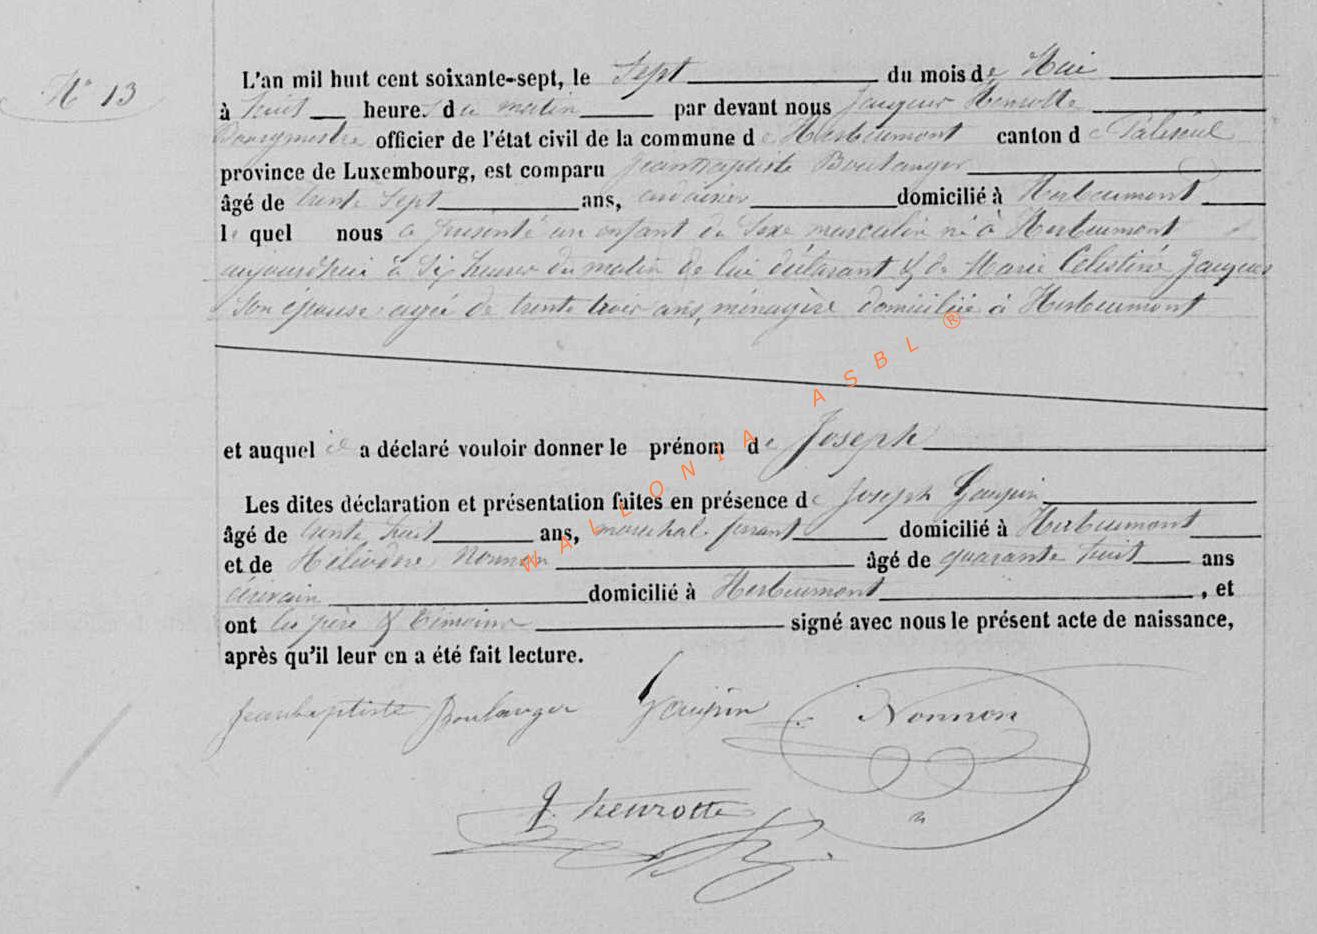 N° 13
L'an mil huit cent soixante-sept, le Sept du mois de Mai
à huit heures du matin par devant nous Jacques Henrotte
Bourgmestre officier de l'état civil de la commune de Herbeumont canton de Paliseul
province de Luxembourg, est comparu Jeanbaptiste Boulanger
âgé de trente Sept ans, domicilié à Herbeumont
le quel nous a présenté un enfant du Sexe masculin né à Herbeumont
aujourd'hui à Six heures du matin de lui déclarant & de Marie Celestine Jacques
Son épouse agée de trente trois ans, ménagère domiciliée à Herbeumont
et auquel il a déclaré vouloir donner le prénom de Joseph
Les dites déclaration et présentation faites en présence de Joseph Gaupin
âgé de trente huit ans, marechal ferrant domicilié à Herbeumont
et de Héliodore Nonnon âgé de quarante huit ans
écrivain domicilié à Herbeumont, et
ont les père & témoins signé avec nous le présent acte de naissance,
après qu'il leur en a été fait lecture.
Jeanbaptiste Boulanger Gaupin Nonnon
J. henrotte
WALLONIA ASBL ®